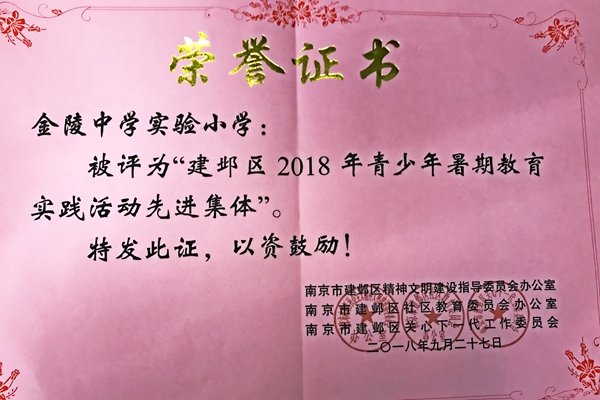 荣誉证书
金陵中学实验小学：
被评为“建邺区 2018 年青少年暑期教育
实践活动先进集体”。
特发此证，以资鼓励！
南京市建邺区精神文明建设指导委员会办公室
南京市建邺区社区教育委员会办公室
南京市建邺区关心下一代工作委员会
二〇一八年九月二十七日